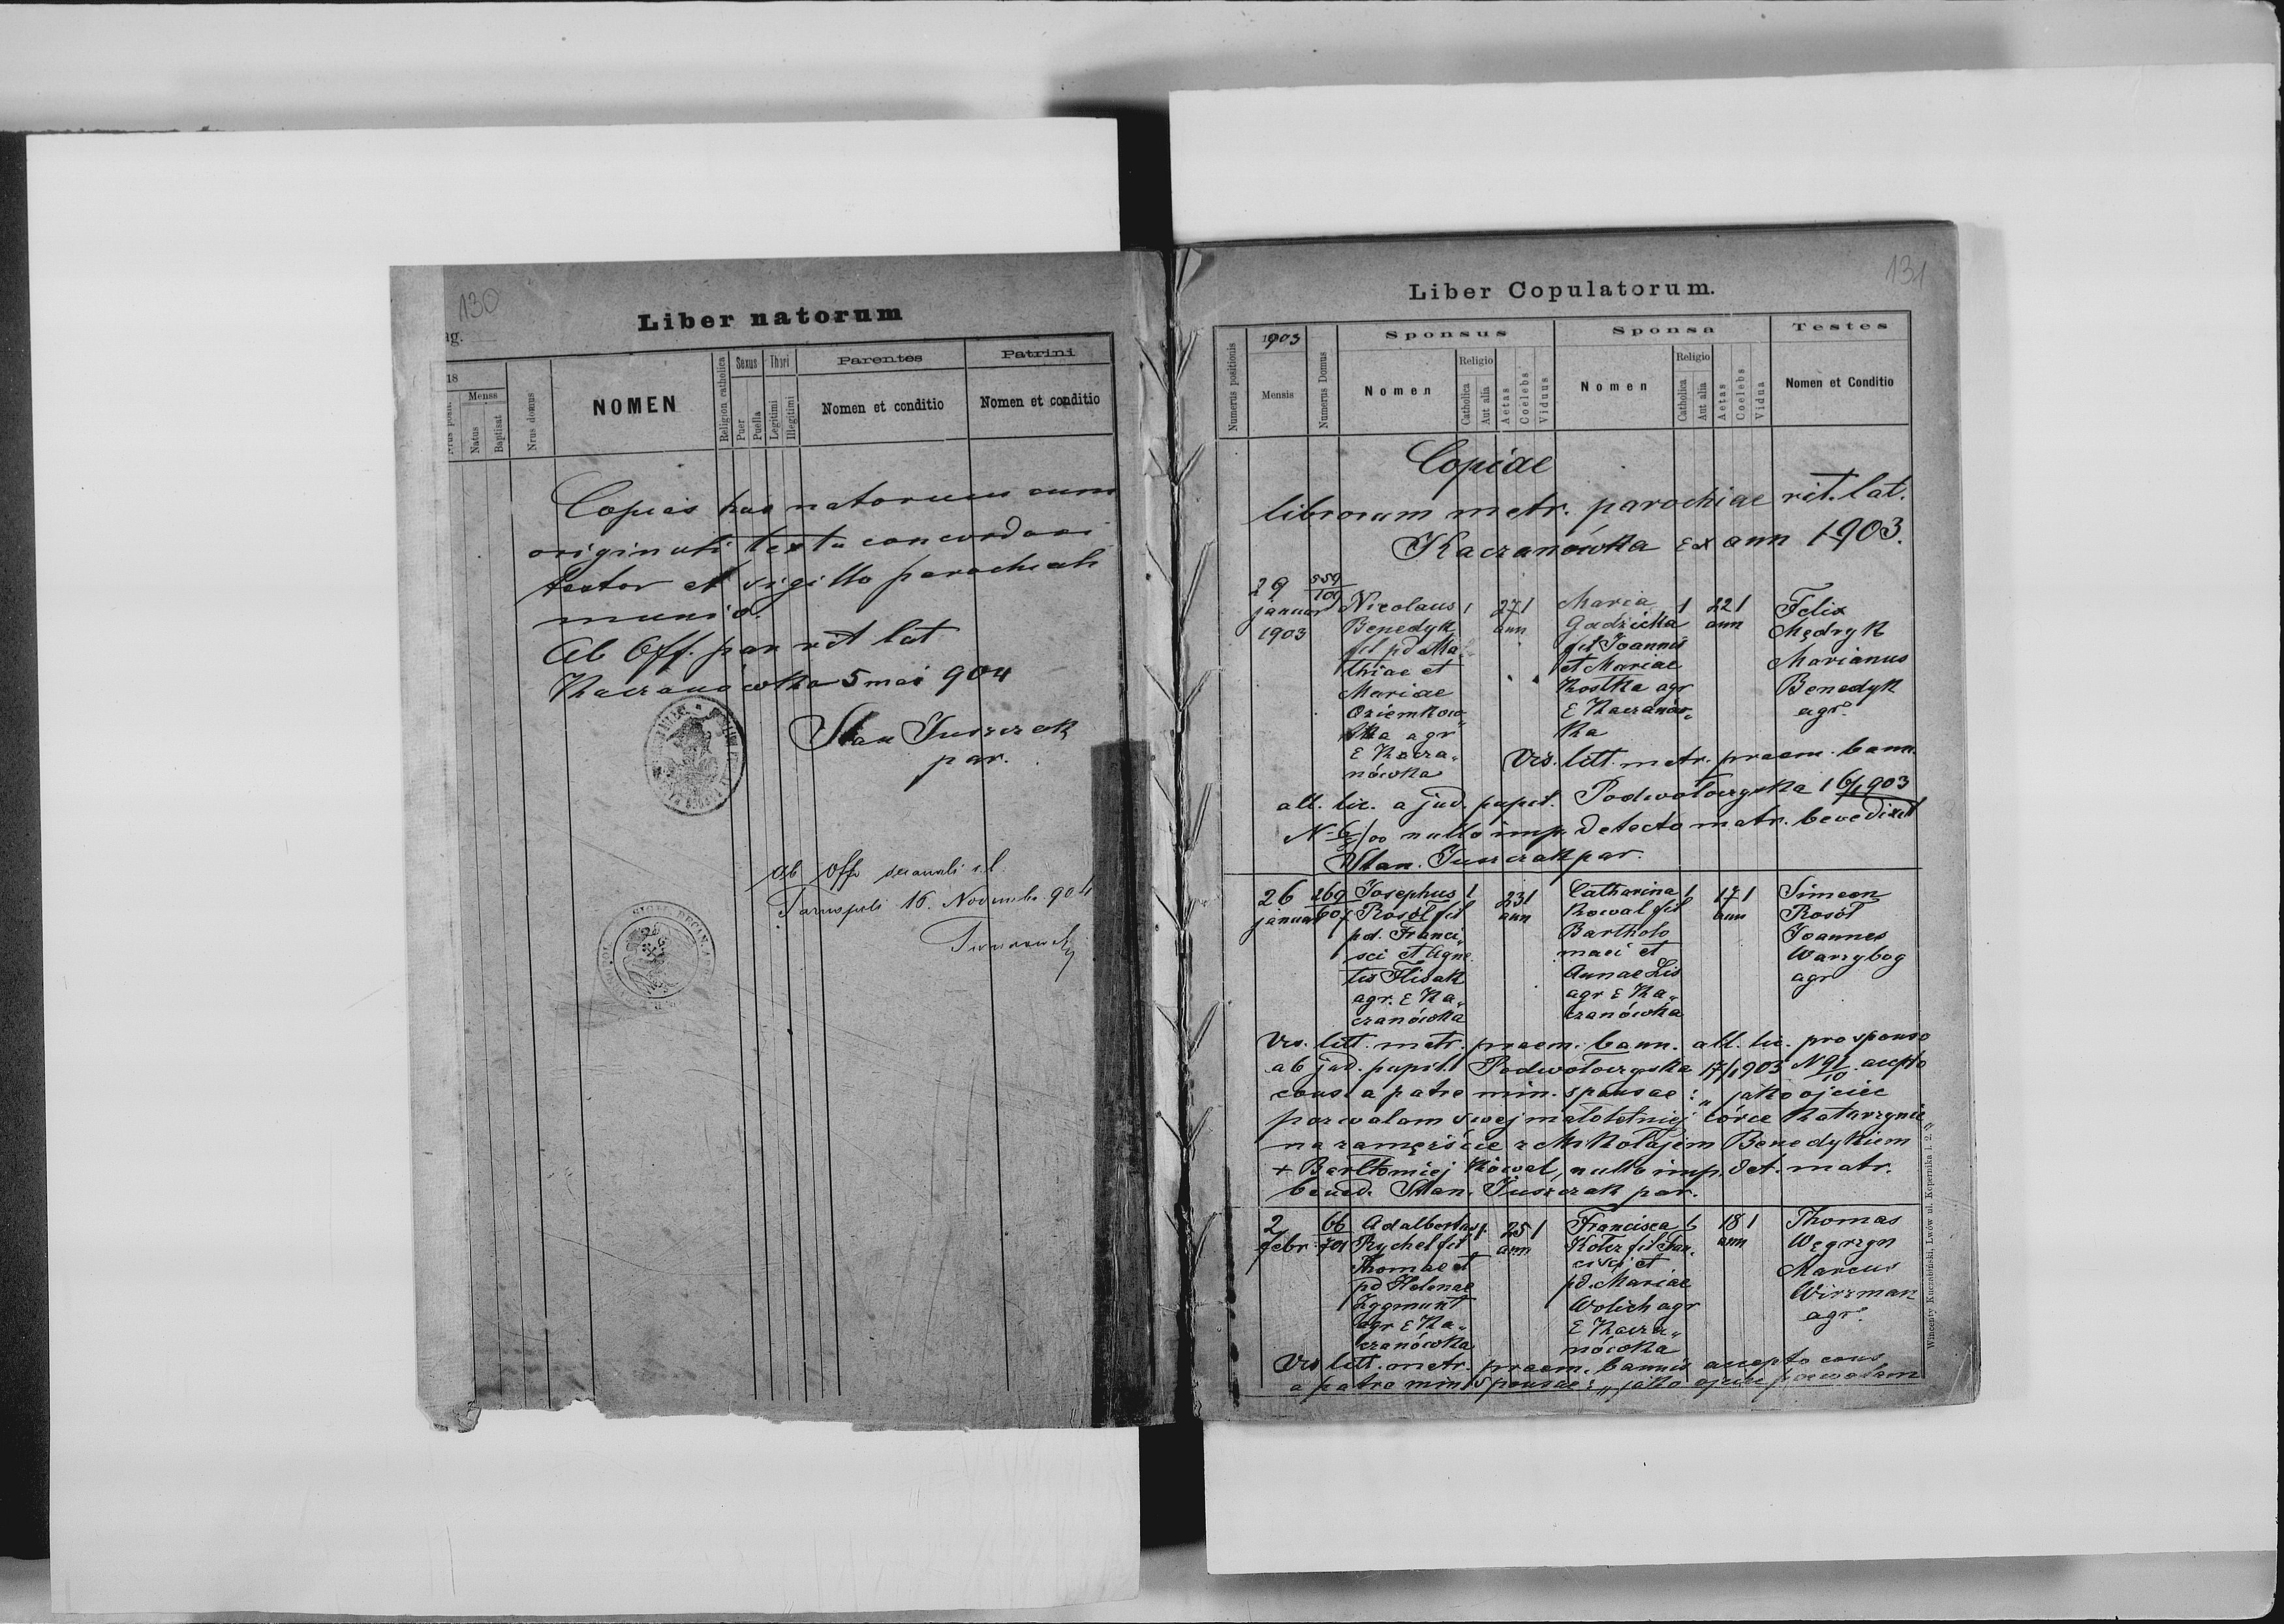 130
ag.
Liber natorum
18
Nrus posit.
Mensis
Natus
Baptisat
Nrus domus
NOMEN
Religion catholica
Sexus
Puer
Puella
Thori
Legitimi
Illegitimi
Parentes
Nomen et conditio
Patrini
Nomen et conditio
Copias has natorum cum
originali textu concordari
testor et sigillo parochiali
munio.
Ab Off. par rit lat
Kaczanówka 5 mai 904
Stan Juszczak
par.
Ab Offo decanali r.l.
Tarnopoli 16. Novembr. 904
131
Liber Copulatorum.
Numerus positionis
1903
Mensis
Numerus Domus
Sponsus
Nomen
Religio
Catholica
Aut alia
Aetas
Coelebs
Viduus
Sponsa
Nomen
Religio
Catholica
Aut alia
Aetas
Coelebs
Vidua
Testes
Nomen et Conditio
Copiae
librorum metr. parochiae rit. lat.
Kaczanówka ex ann 1903.
29
januar
1903
559
701
Nicolaus
Benedyk
fil pd Ma
thiae et
Mariae
Oziemkow„
ska agr
E Kacza„
nówka
1
27 1
ann
Maria
Gadzicka
fil Joannis
et Mariae
Kostka agr
E Kaczanów„
ka
1
22 1
ann
Felix
Mędryk
Marianus
Benedyk
agr.
Vis. litt. metr. praem. bann.
all. lic. a jud. pupil. Podwołoczyska 16/1 903
nullo imp. detecto matr. benedixit
Stan. Juszczak par.
26
januar
269
607
Josephus
Rosół fil
pd. Franci„
sci et Agne
tis Flisak
agr. E Ka„
czanówka
1
23 1
ann
Catharina
Kowal fil
Bartholo
maei et
Annae Lis
agr E Ka„
czanówka
1
17 1
ann
Simeon
Rosół
Joannes
Warzybog
agr
Vis. litt. metr. praem. bann. all. lic. pro sponso
ab jud. pupil. Podwołoczyska 17/1 903 N 9/10 accepto
cons a patre min. sponsae: „jako ojciec
pozwalam swej małoletniej córce Katarzynie
na zamęźście z Mikołajem Benedykiem
+ Bartłomiej Kowal, nullo imp. det. matr.
bened. Stan. Juszczak par.
2
febr.
66
701
Adalbertus
Rychel fil
Thomae et
pd Helenae
Zygmunt
agr E Ka„
czanówka
1.
25 1
ann
Francisca
Kotz fil Fran„
cisci et
pd. Mariae
Wolich agr
E Kacza„
nówka
18 1
ann
Thomas
Węgrzyn
Marcus
Wirzman
agr.
Vis litt. metr. praem. bannis accepto cons
a patre min sponsae: „jako ojciec pozwalam
Wincenty Kuczabiński, Lwów ul. Kopernika l. 2.